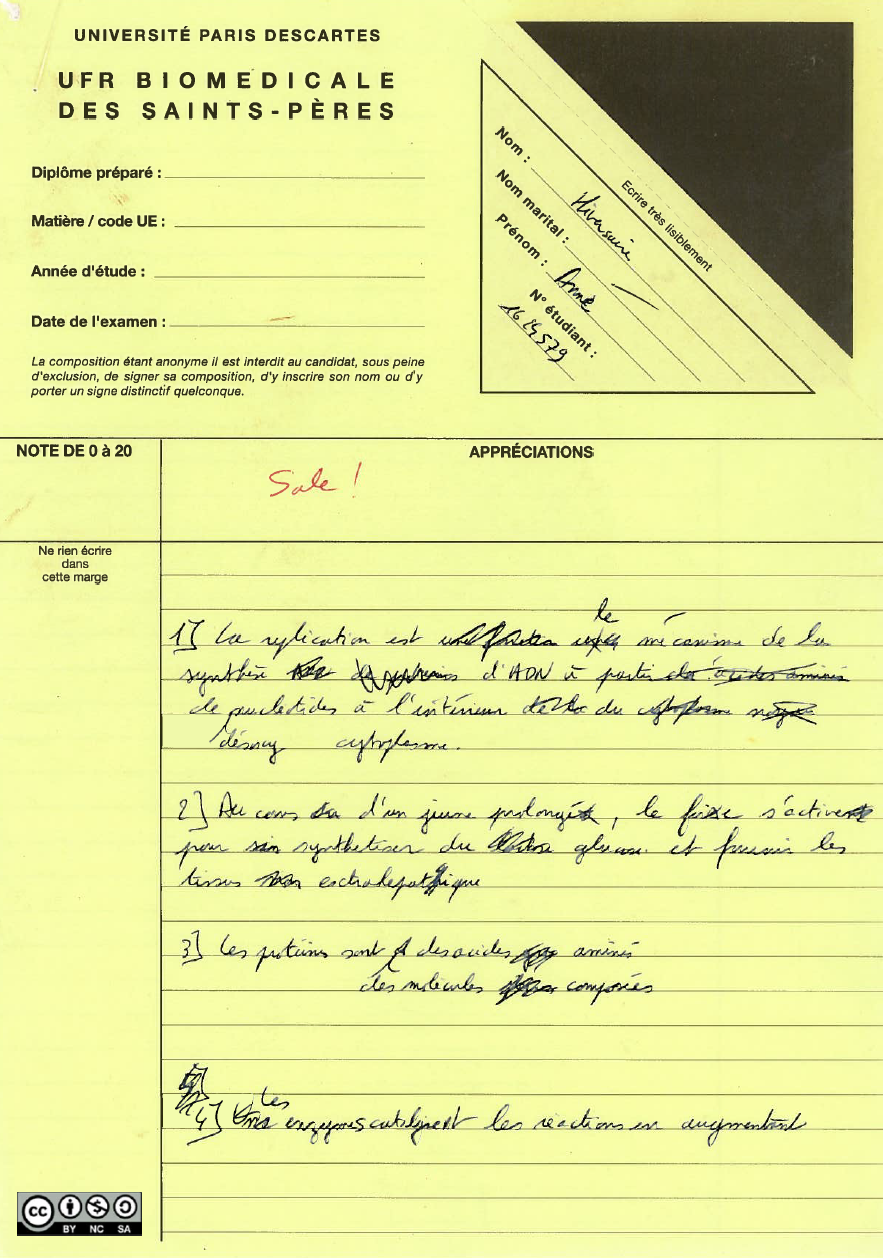 UNIVERSITÉ PARIS DESCARTES
UFR BIOMEDICALE
DES SAINTS-PÈRES
Diplôme préparé :
Matière / code UE :
Année d'étude :
Date de l'examen :
La composition étant anonyme il est interdit au candidat, sous peine
d'exclusion, de signer sa composition, d'y inscrire son nom ou d'y
porter un signe distinctif quelconque.
Ecrire très lisiblement
Nom :
Nom marital :
Prénom : Anne
N° étudiant :
NOTE DE 0 à 20
APPRÉCIATIONS
Sale !
Ne rien écrire
dans
cette marge
le
1] La réplication est mécanisme de la
synthèse d'ADN à partir
de nucleotides à l'intérieur du
désoxy cytoplasme.
2] Au cours d'un jeune prolongé, le foie s'active
pour synthetiser du glucose et fournir les
tissus extrahepatique
3] Les protéines sont des acides aminés
des molécules composées
Les
4] enzymes catalysent les réactions en augmentant
CC BY NC SA